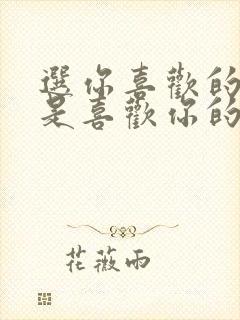 選你喜歡的
是喜歡你的
花薇雨